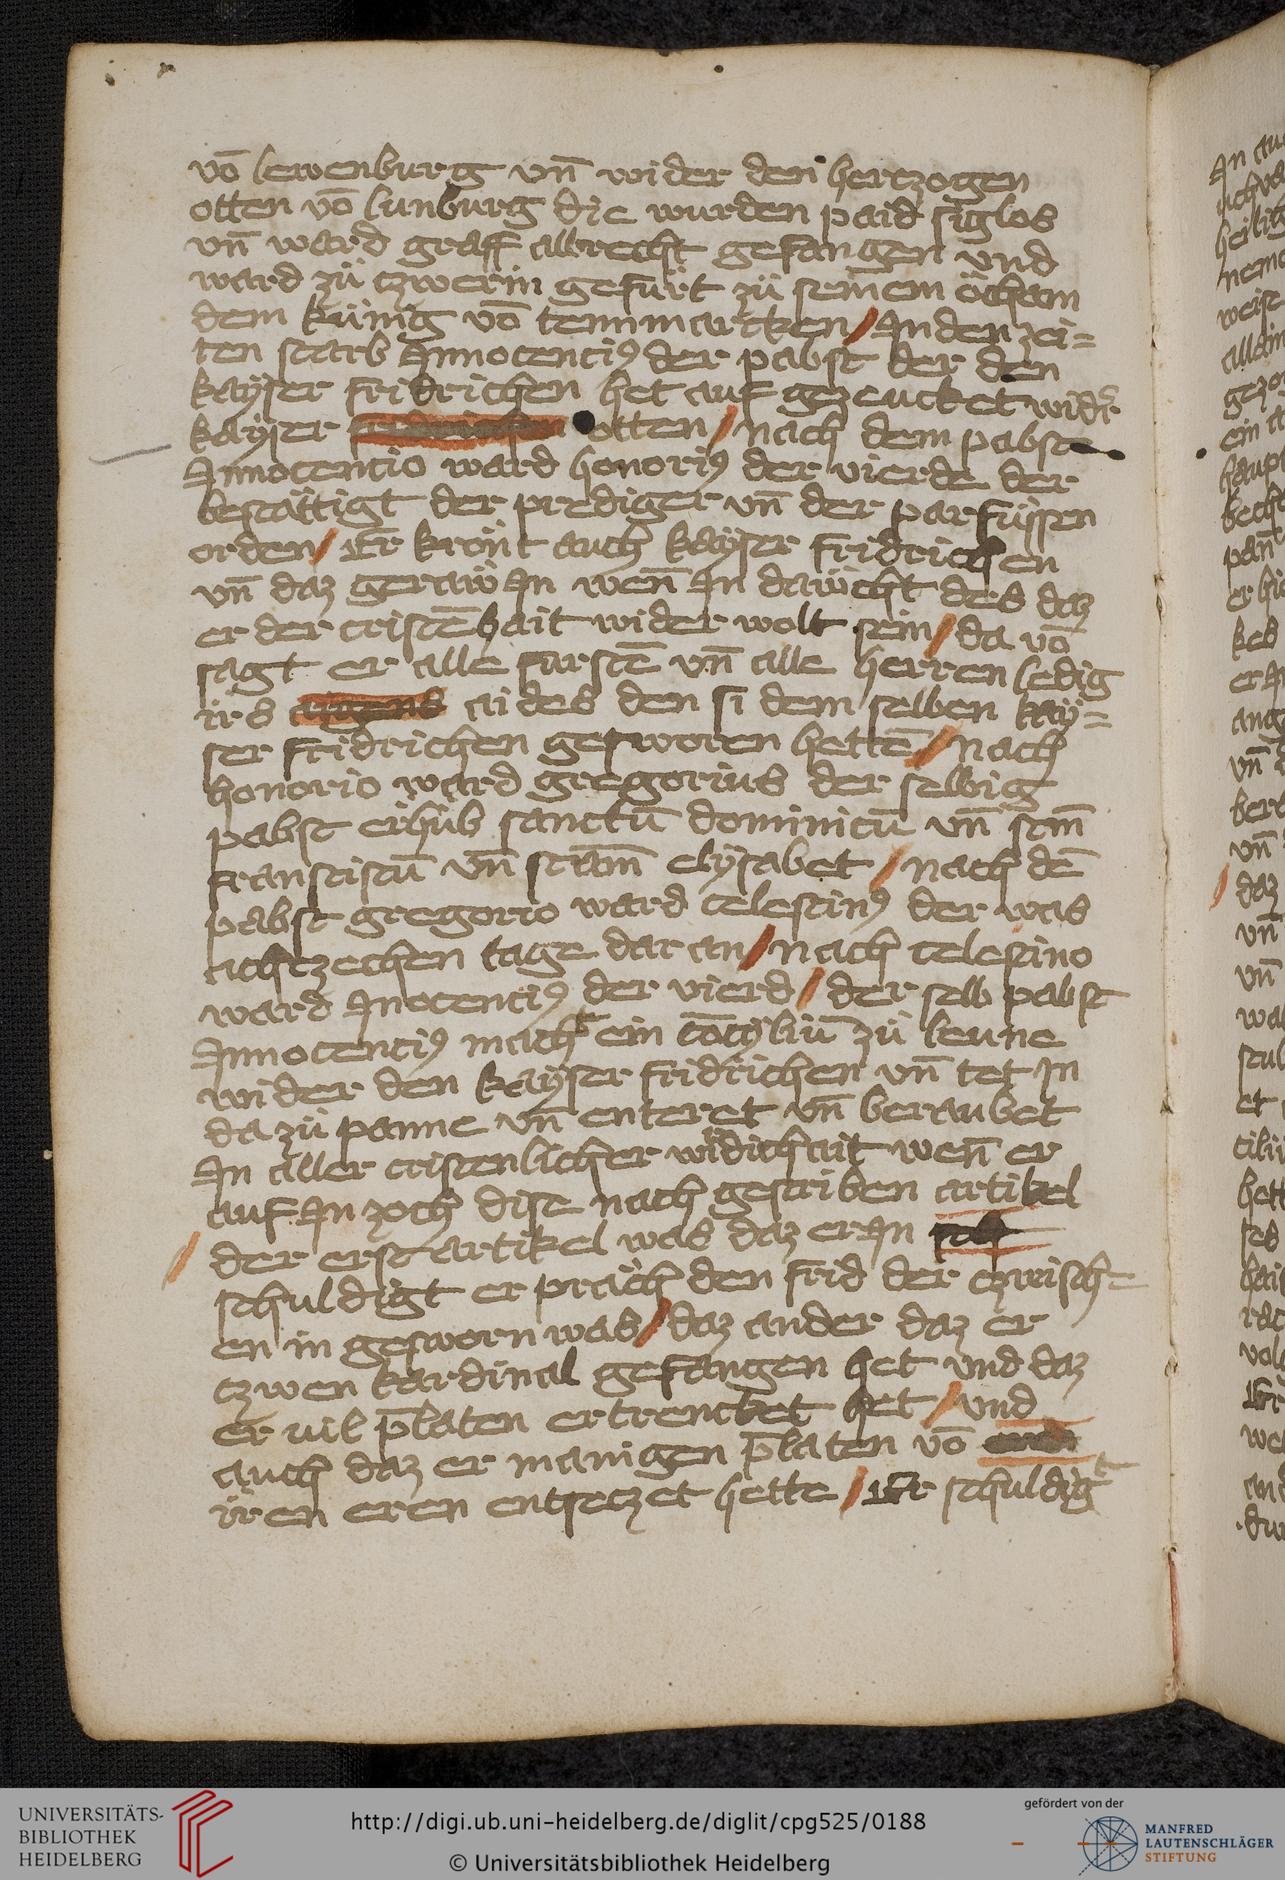 vō lewenburg vn̄ wider den hertzogen
otten vō lunburg die wurden paid siglos
vn̄ ward graff albrecht gefangen vnd
ward zü czwerin gefürt zü seinem öcham
dem künig vō tennmarcken / In den zei=
ten starb Innocencīꝰ der pabst der den
kayser fridrichen het auf gezeucket widr̄
kayser otten / nach dem pabst
Innocencio ward honoriꝰ der vierde der
bestättigt der prediger vn̄ der parfüssen
orden / Er krönt auch kayser fridrichen
vn̄ daz geraw In wen̄ In dawcht des daz
er der cristēhait wider wolt sein / da vō
sagt er alle fürstē vn̄ alle herren ledig
irs aides den si dem selben kay=
ser fridrichen gesworen hettē / nach
honorio ward gregorius der selbig
pabst erhüb sanctū dominicū vn̄ stm̄
franciscū vn̄ stam̄ elyzabet / nach dē
pabst gregorio ward celestinꝰ der was
achtzechen tage dar an / nach celestino
ward Inocenciꝰ der vierd / der selb pabst
Innocenciꝰ macht ein cōcyliū zü leune
wider den kayser fridrichen vn̄ tet in
da zü panne vn̄ enteret vn̄ beraubet
In aller cristenlicher wirdichait wen̄ er
auf In zoch dise nach gescriben artikel
der erst artikel was daz er In
schuldigt er präch den frid der czwisch=
en in gesworn was / daz ander daz er
czwen kardinal gefangen het vnd daz
er vil p̄laten ertrencket het / vnd
auch daz er manigen p̄laten vō
iren eren entseczet hette / Er schuldigt
UNIVERSITÄTS-
BIBLIOTHEK
HEIDELBERG
http://digi.ub.uni-heidelberg.de/diglit/cpg525/0188
© Universitätsbibliothek Heidelberg
gefördert von der
MANFRED
LAUTENSCHLÄGER
STIFTUNG